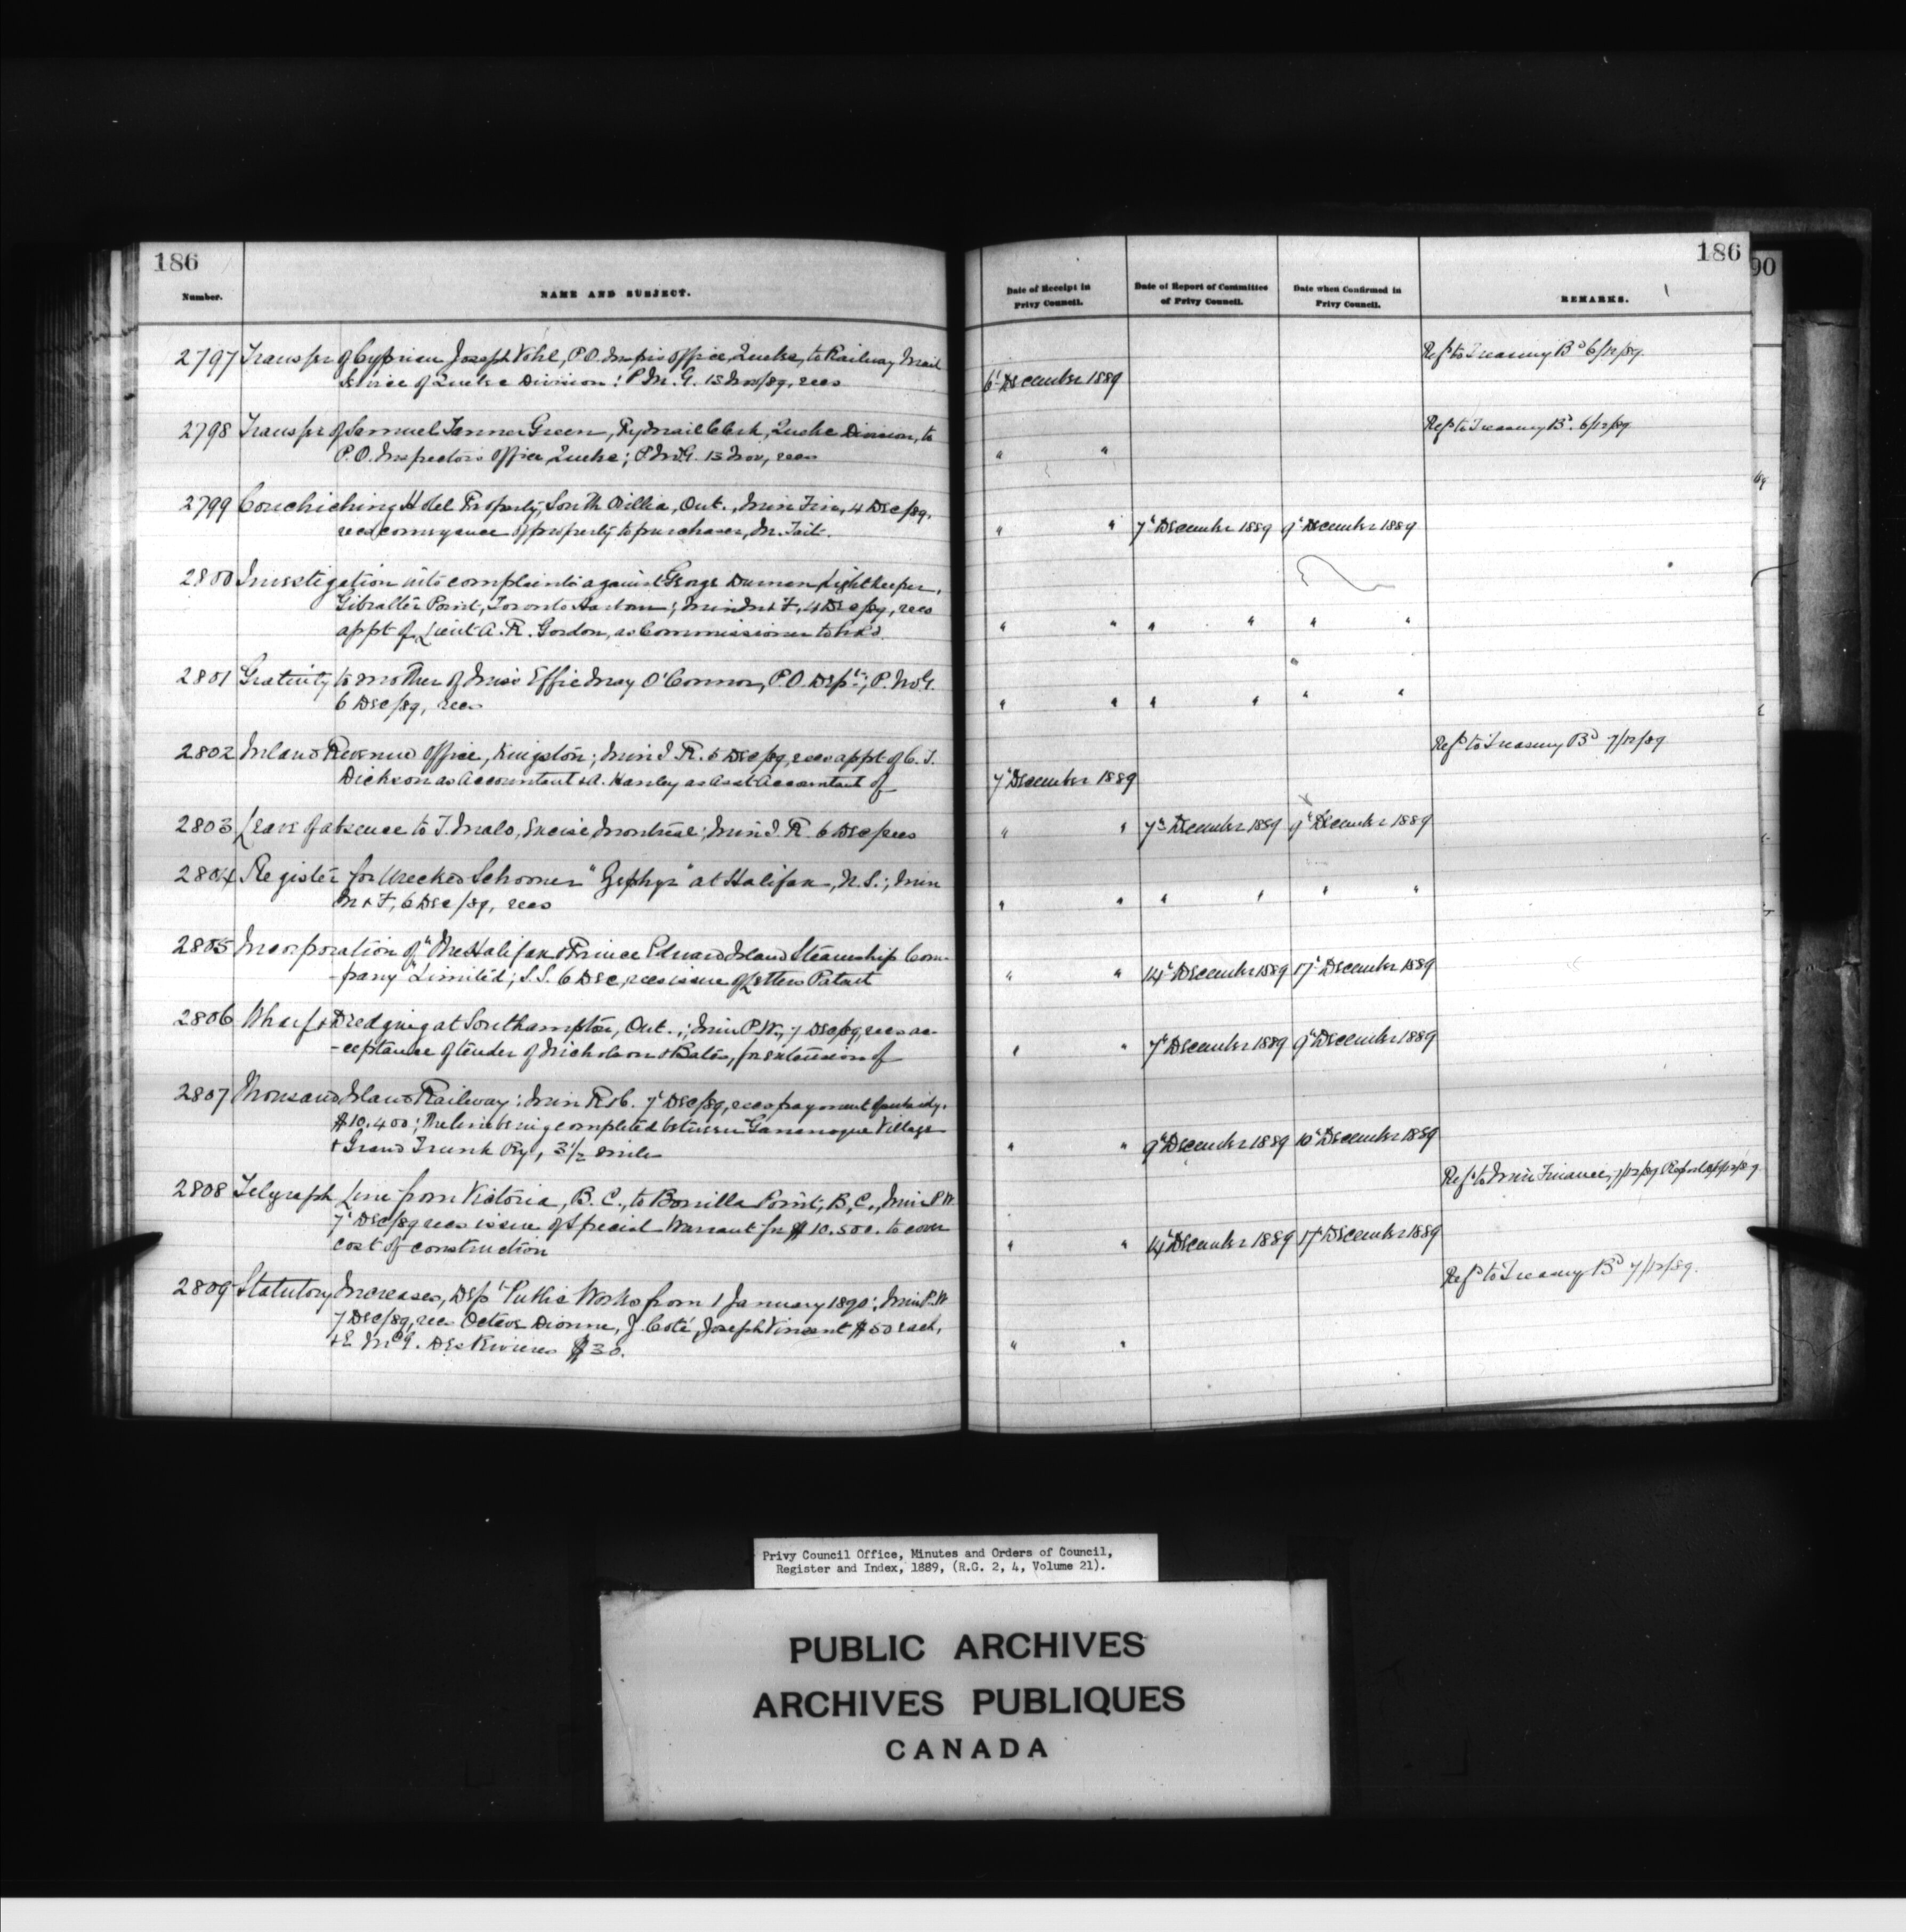 186
186
90
Number.
NAME AND SUBJECT.
Date of Receipt in Privy Council.
Date of Report of Committee of Privy Council.
Date when Confirmed in Privy Council.
REMARKS.
2797 Transfer of Cyprien Joseph Vohl, P.O. Insp's Office, Quebec, to Railway Mail
Service of Quebec Division; P.M.G. 15 Nov/89, recs
6' December 1889
Refd to Treasury Bd 6/12/89.
2798 Transfer of Samuel Tanner Green, Ry Mail Clerk, Quebec Division, to
P.O. Inspectors Office Quebec; P.M.G. 15 Nov, recs
" "
Refd to Treasury Bd. 6/12/89
2799 Couchiching Hotel Property, South Orillia, Ont., Min Fin, 4 Dec/89.
recs conveyance of property to purchaser, Mr. Tait.
" " 7" December 1889 9" December 1889
2800 Investigation into complaints against George Durnan Lightkeeper,
Gibralter Point, Toronto Harbour; Min M & F, 4 Dec/89, recs
appt of Lieut A. R. Gordon, as Commissioner to hold
" " " " " "
2801 Gratuity to mother of Miss Effie May O'Connor, P.O. Dept; P.M.G.
6 Dec/89, recs
" " " " " "
2802 Inland Revenue Office, Kingston; Min I. R. 5 Dec/89, recs appt of C. T.
Dickson as Accountant & A. Hanley as Asst Accountant of
7" December 1889
Refd to Treasury Bd 7/12/89
2803 Leave of absence to T. Malo, Excise Montreal; Min I. R. 6 Dec/recs
" " 7" December 1889 9" December 1889
2804 Register for Wrecked Schooner "Zephyr" at Halifax, N.S.; Min
M & F, 6 Dec/89, recs
" " " " " "
2805 Incorporation of "The Halifax & Prince Edward Island Steamship Com-
-pany" Limited; S.S. 6 Dec, recs issue of Letters Patent
" " 14" December 1889 17" December 1889
2806 Wharf & Dredging at Southampton, Ont.; Min P.W., 7 Dec/89, recs ac-
-ceptance of tender of Nicholson & Bates, for extension of
" " 7" December 1889 9" December 1889
2807 Thousand Island Railway; Min R & C. 7' Dec/89, recs payment of subsidy.
$10.400; the line being completed between Gananoque Village
& Grand Trunk Ry, 3 1/2 miles
" " 9" December 1889 10" December 1889
2808 Telegraph Line from Victoria, B.C., to Bonilla Point; B.C., Min P.W.
7' Dec/89 recs issue of Special Warrant for $10.500. to cover
cost of construction
" " 14" December 1889 17" December 1889
Refd to Min Finance, 7/12/89
2809 Statutory Increases, Dept Public Works from 1 January 1890; Min P.W
7 Dec/89, recs Octave Dionne, J. Coté, Joseph Vincent $50 each,
& E. McG. Des Rivieres $30.
" "
Refd to Treasury Bd 7/12/89.
Privy Council Office, Minutes and Orders of Council,
Register and Index, 1889, (R.G. 2, 4, Volume 21).
PUBLIC ARCHIVES
ARCHIVES PUBLIQUES
CANADA